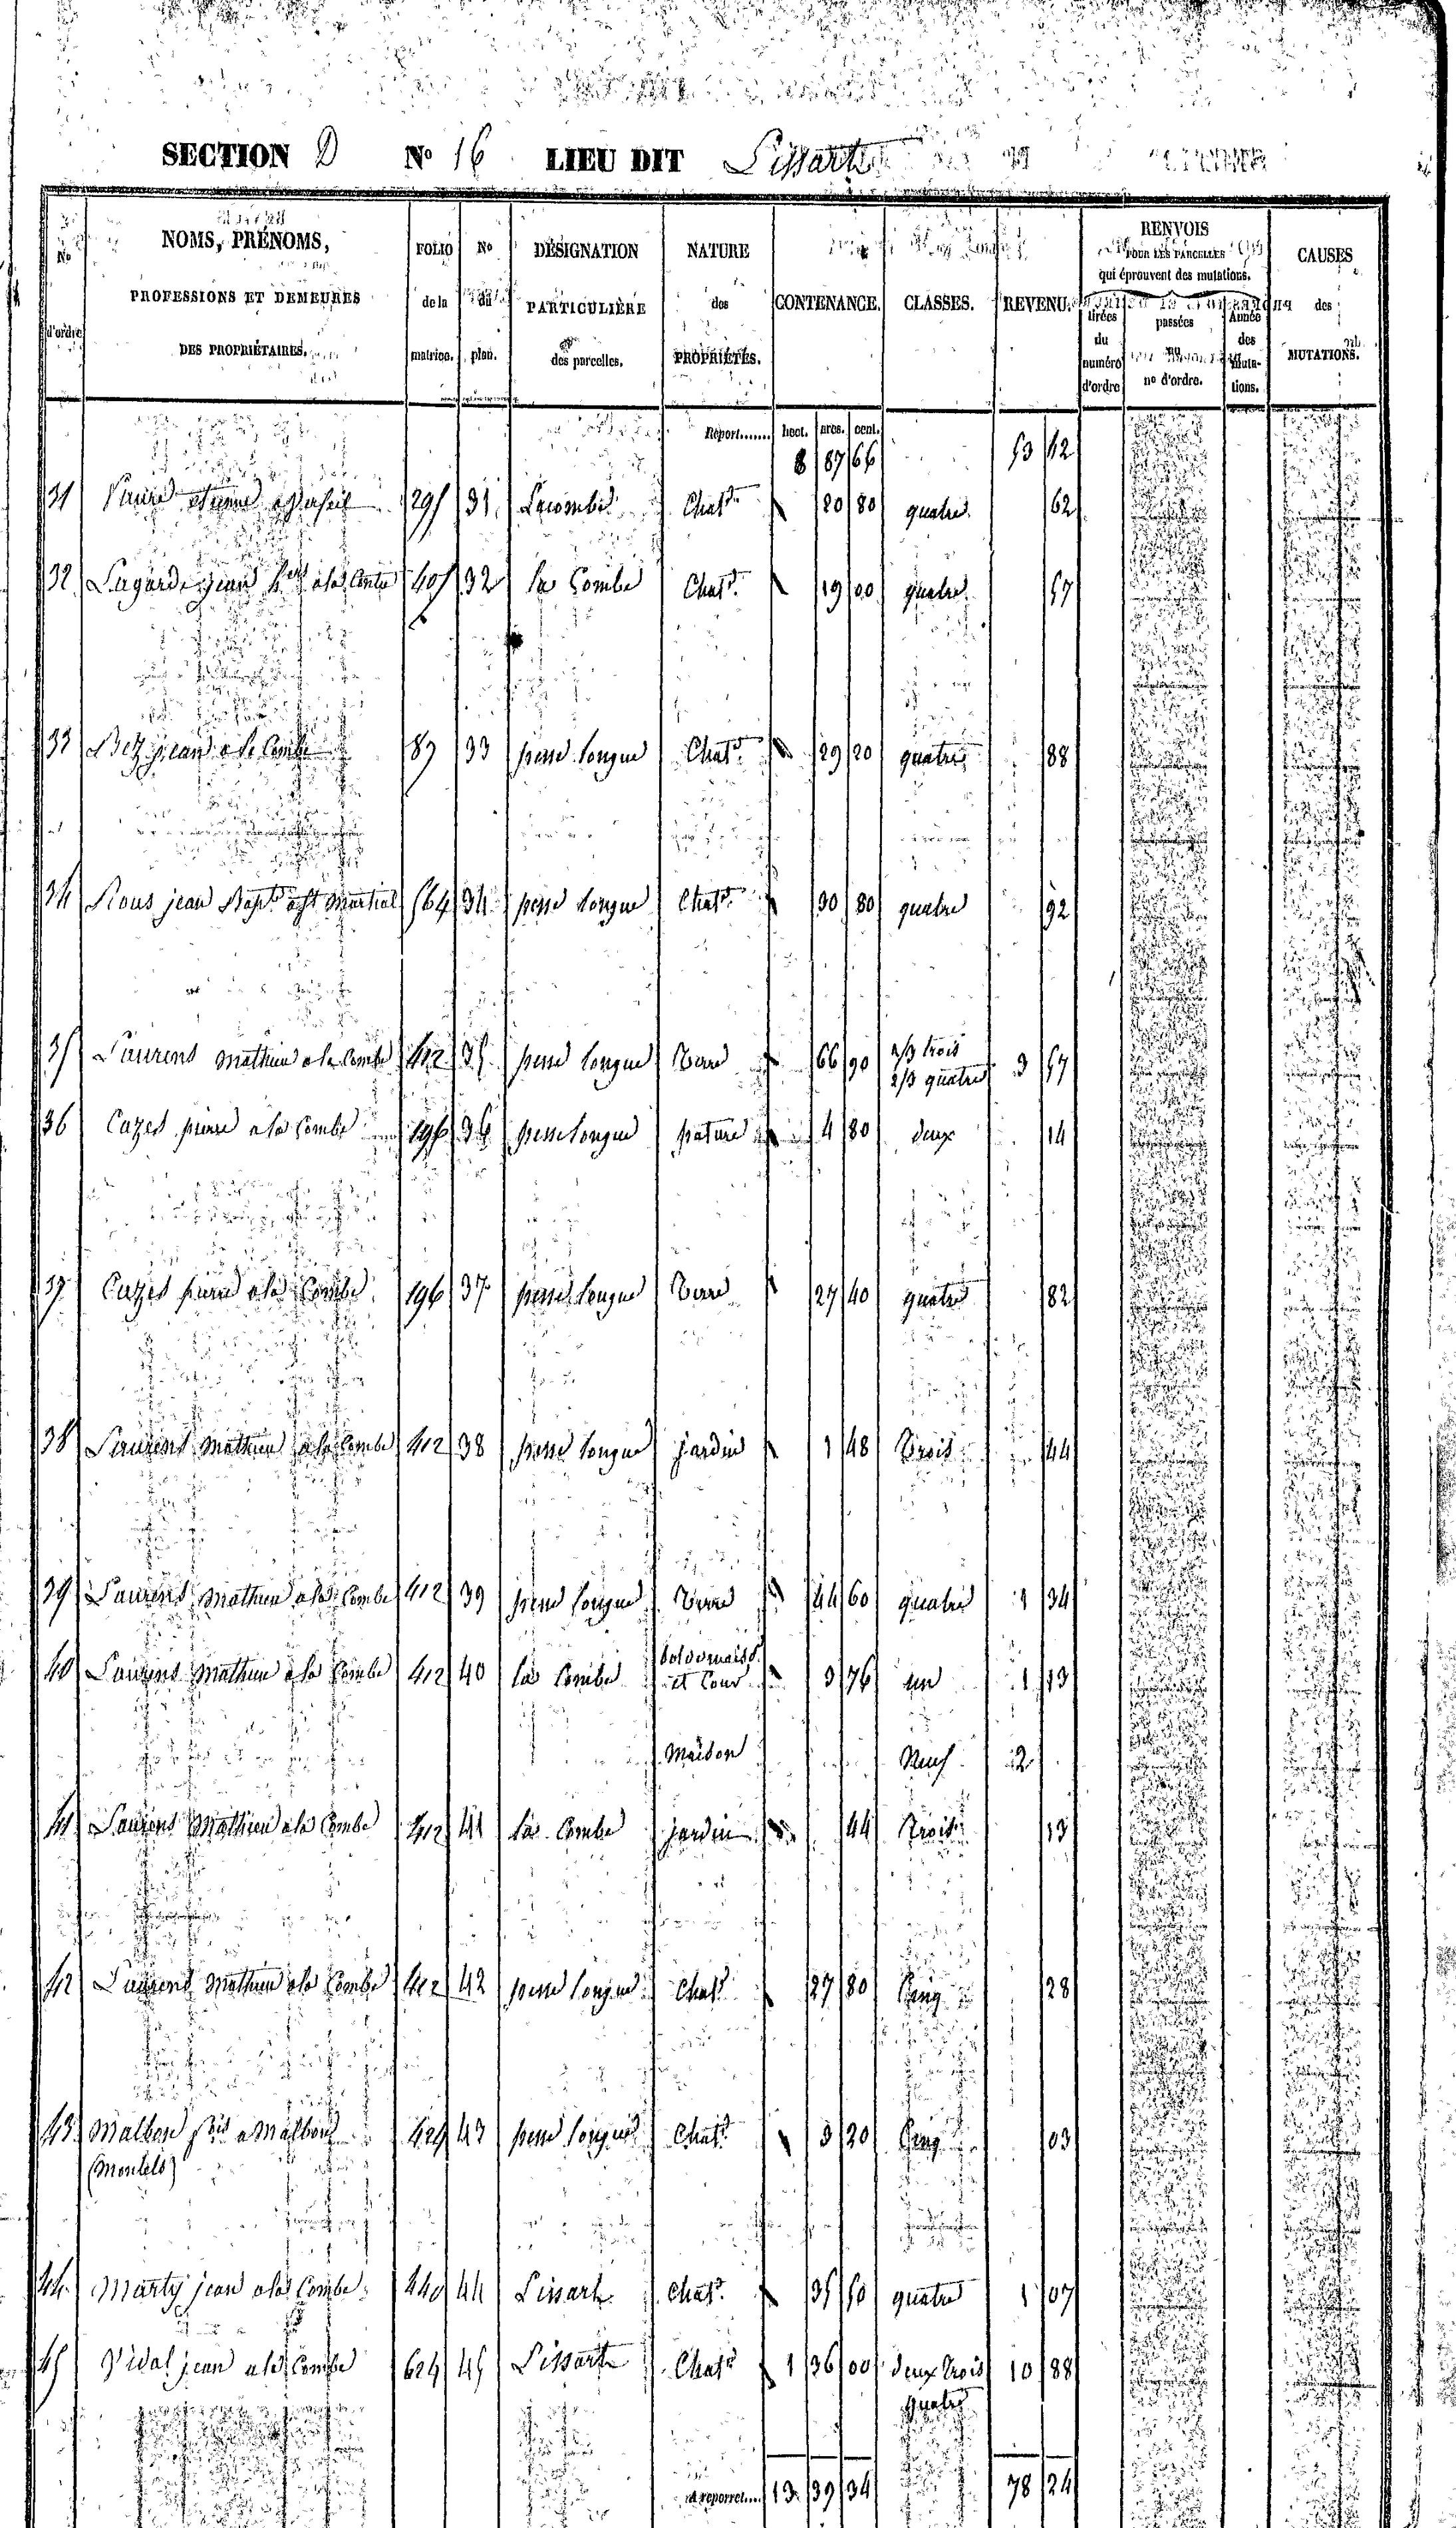 SECTION D N° 16 LIEU DIT Lissart
N° d'ordre NOMS, PRÉNOMS, PROFESSIONS ET DEMEURES DES PROPRIÉTAIRES. FOLIO de la matrice. N° du plan. DÉSIGNATION PARTICULIÈRE des parcelles. NATURE des PROPRIÉTÉS. CONTENANCE. CLASSES. REVENU. RENVOIS POUR LES PARCELLES qui éprouvent des mutations. tirées du numéro d'ordre passées au n° d'ordre. Année des Mutations. CAUSES des MUTATIONS.
Report....... hect. ares. cent.
8 87 66 53 12
31 295 31 Lacombe Chat. 20 80 quatre 62
32 Lagarde jean à la Combe 405 32 la Combe Chat. 19 00 quatre 57
33 Betz jean a la Combe 87 33 pesse longue Chat. 29 20 quatre 88
34 Rous jean Bapte a St Martial 564 34 pesse longue Chat. 30 80 quatre 92
35 Laurens Mathieu a la Combe 412 35 pesse longue Terre 66 90 1/3 trois 3 57
2/3 quatre
36 Cazes pierre a la Combe 196 36 pesse longue pature 4 80 deux 14
37 Cazes pierre a la Combe 196 37 pesse longue Terre 27 40 quatre 82
38 Laurens Mathieu a la Combe 412 38 pesse longue jardin 1 48 Trois 44
39 Laurens Mathieu a la Combe 412 39 pesse longue Terre 44 60 quatre 1 34
40 Laurens Mathieu a la Combe 412 40 la Combe sol de maison et Cour 3 76 un 1 13
Maison Neuf 2
41 Laurens Mathieu a la Combe 412 41 la Combe jardin 44 Trois 13
42 Laurens Mathieu a la Combe 412 42 pesse longue Chat. 27 80 Cinq 28
43 Malbon a Malbon 424 43 pesse longue Chat. 3 20 Cinq 03
(Montels)
44 Marty jean a la Combe 440 44 Lissart Chat. 35 60 quatre 1 07
45 Vidal jean a la Combe 624 45 Lissart Chat. 1 36 00 deux trois 10 88
quatre
A reporter.... 13 39 34 78 24